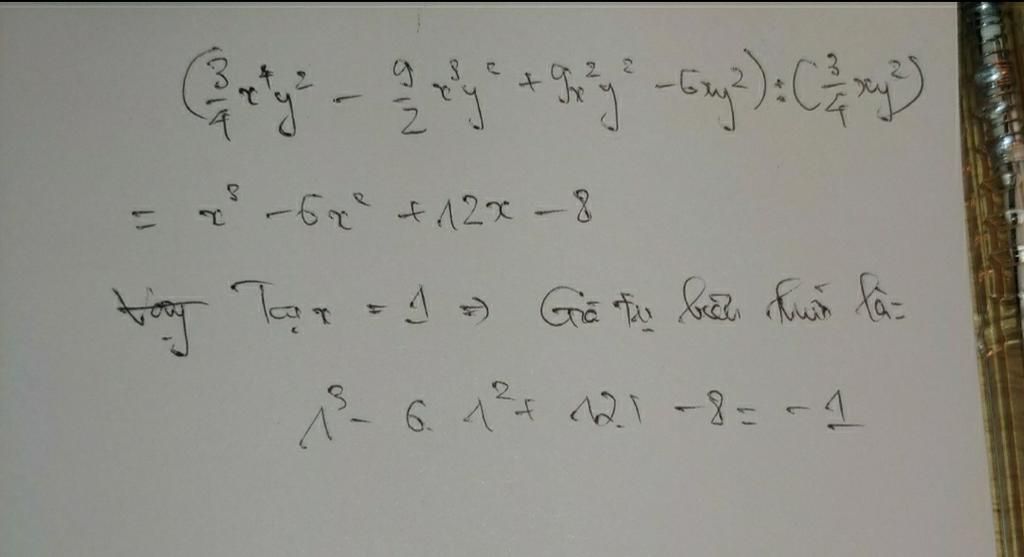 (3/4 x⁴y² - 9/2 x³y² + 9x²y² - 6xy²) : (3/4 xy²)
= x³ - 6x² + 12x - 8
Tại x = 1 => Giá trị biểu thức là:
1³ - 6. 1² + 12.1 - 8 = -1